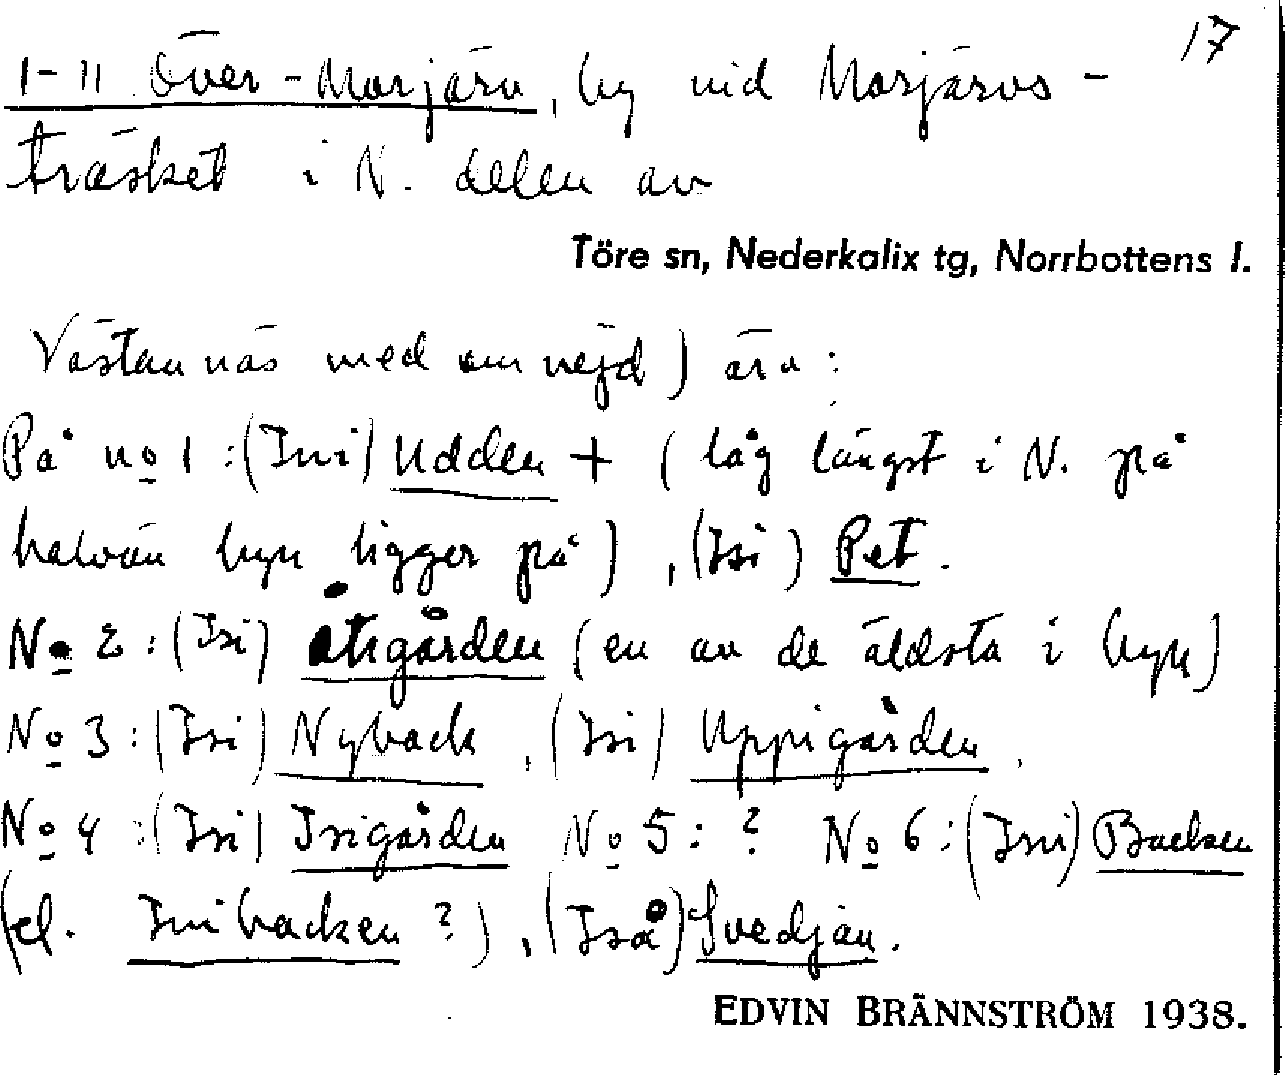 17
1-11 Över-Morjärv, by vid Morjärvs-
träsket i N. delen av
Töre sn, Nederkalix tg, Norrbottens l.
Västannäs med omnejd) äro:
På no 1 : (Ini) Udden + (låg längst i N. på
halvön byn ligger på), (Isi) Pet.
No 2 : (Isi) Åtsgården (en av de äldsta i byn)
No 3 : (Isi) Nyback, (Isi) Uppigården.
No 4 : (Isi) Isigården No 5 : ? No 6 : (Ini) Backen
(el. Inibacken ?), (Iså) Svedjan.
EDVIN BRÄNNSTRÖM 1938.